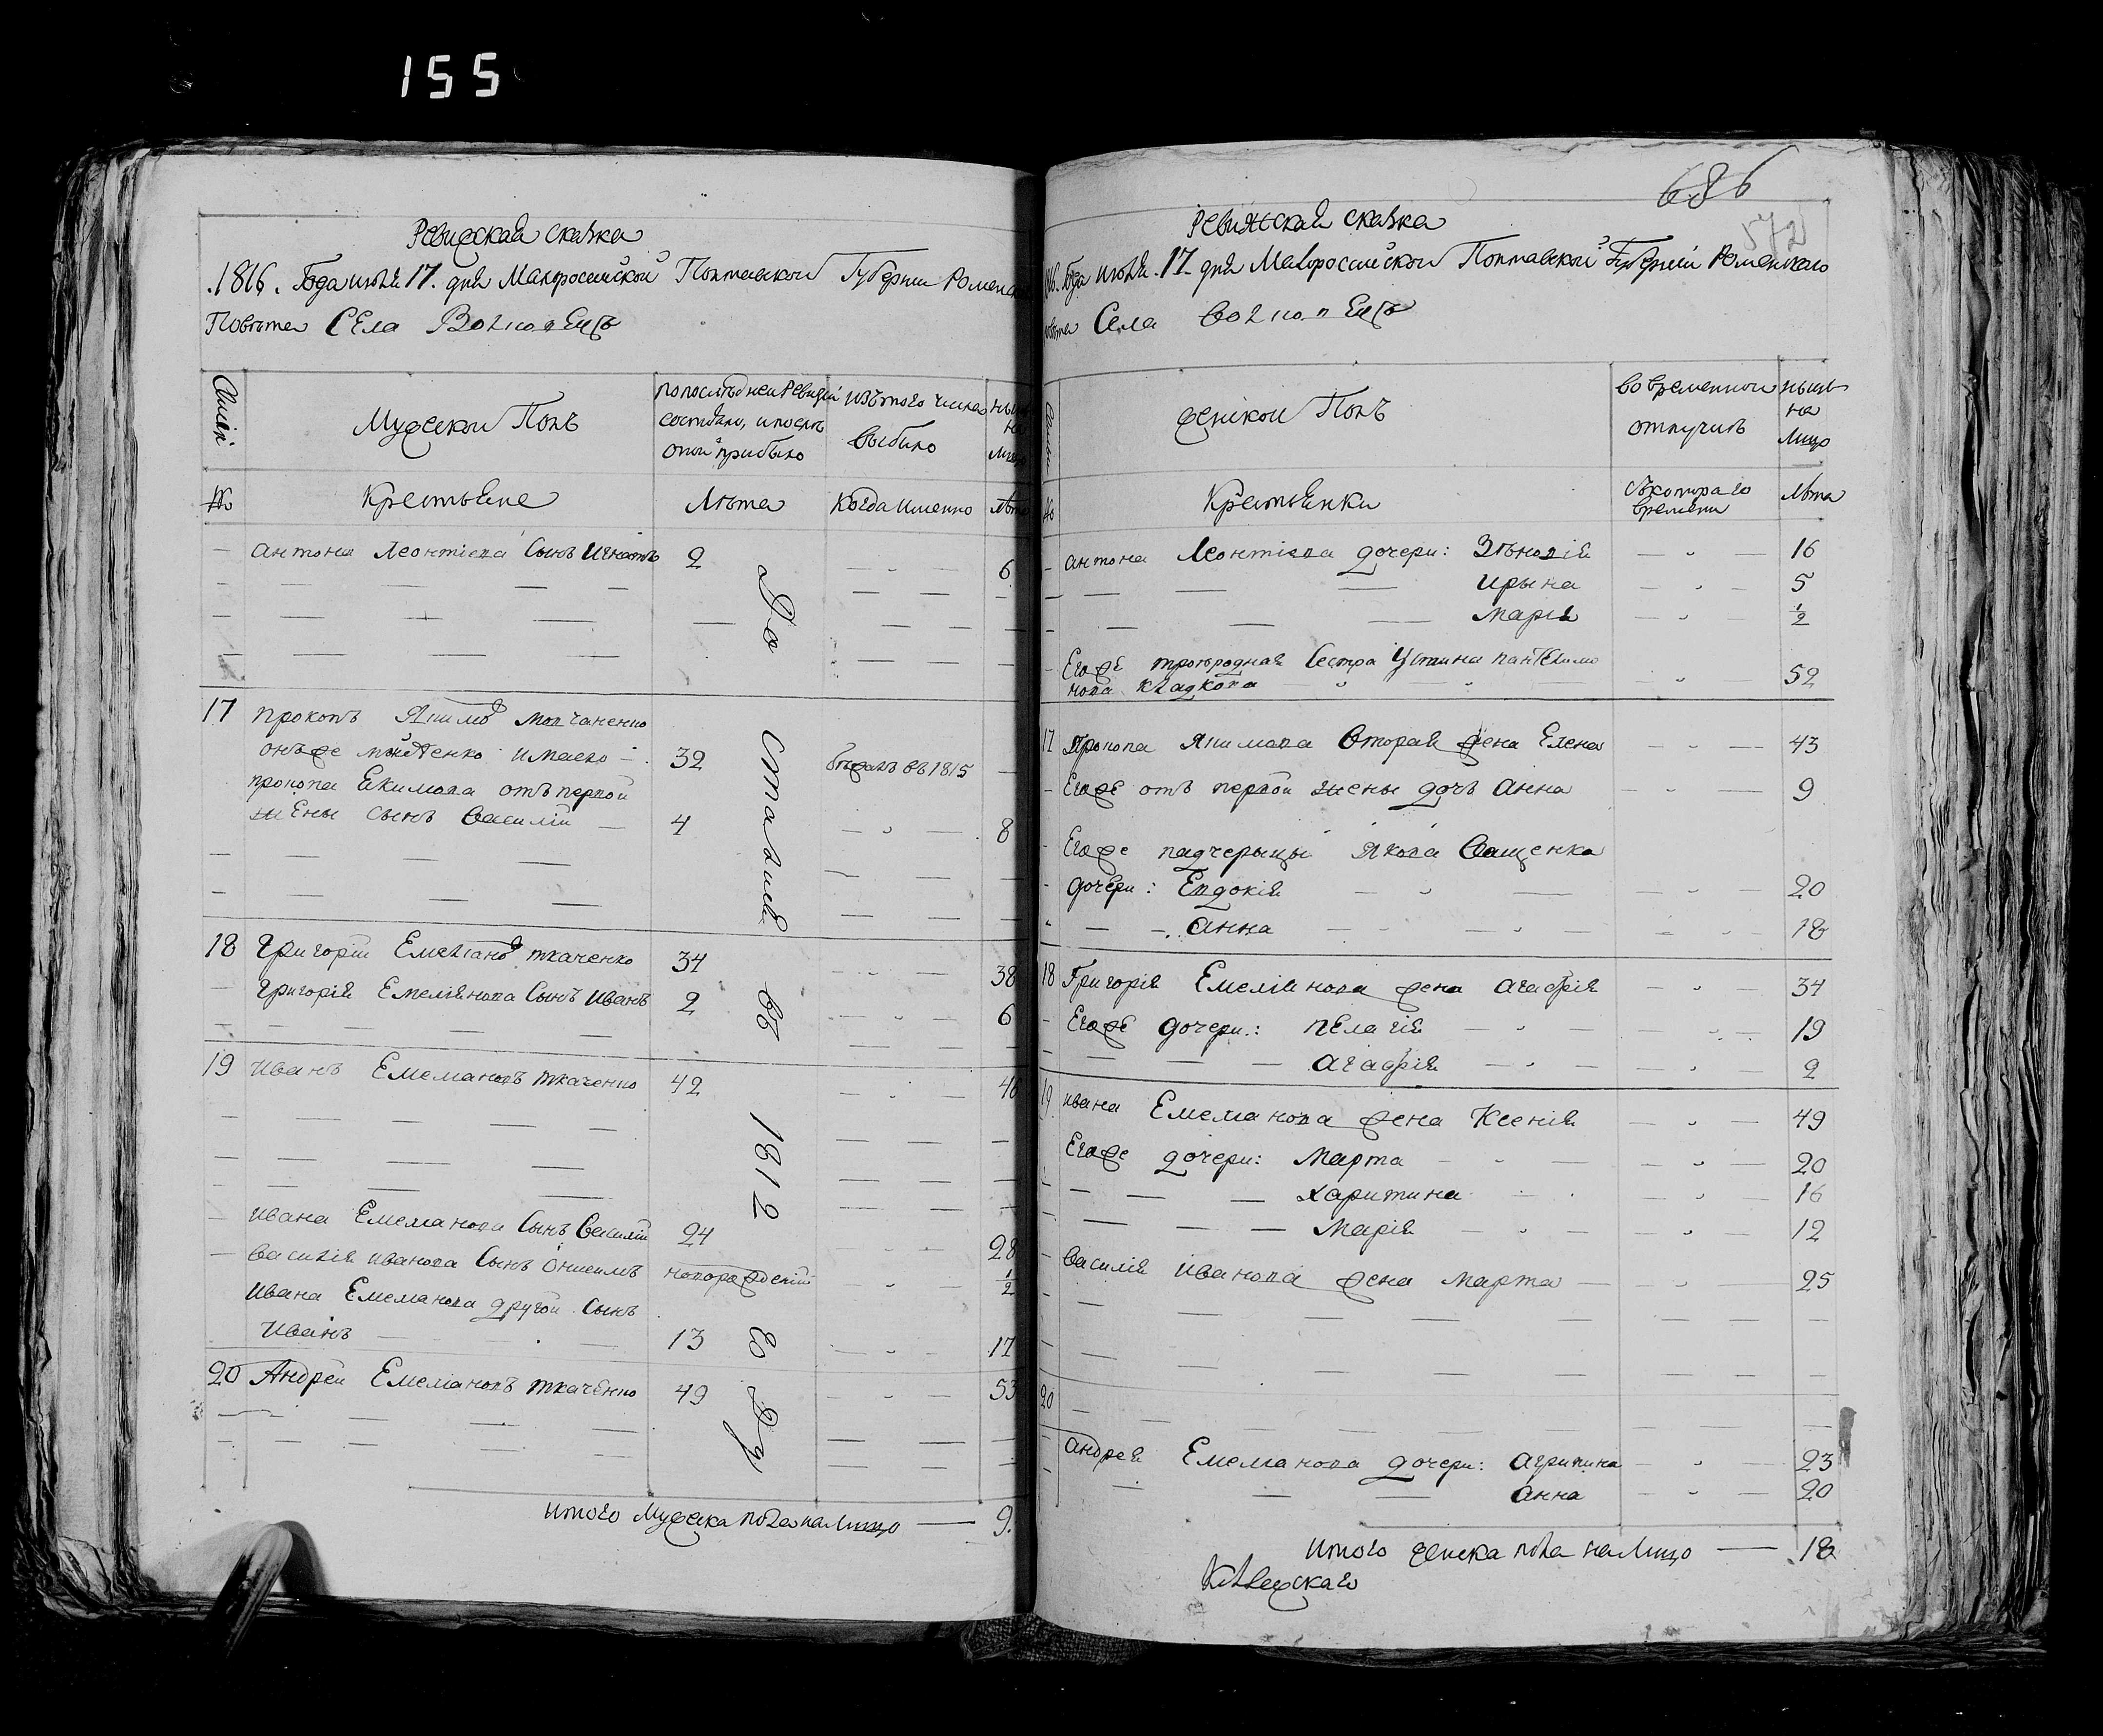 155
Ревижская сказка
1816. Года июля 17. дня Малоросийской Полтавской Губернии Роменска
Повета Села Волковенцъ
Семьи
Мужеской Полъ
по последней Ревизіи
состояло, и после
оной прибыло
изъ того числа
выбыло
ныне
на
лицо
№
Крестьяне
Лета
Когда именно
Лета
Состоялись въ 1812 году
антона Леонтіева Сынъ Игнатъ 2 6
17 Прокопъ Якимовъ Молчаненко
онъ же имаетъ 32 въ 1815
прокопа Екимова отъ первой
жены сынъ Василій 4 8
18 Григорій Емеліановъ ткаченко 34 38
Григорія Емеліянова Сынъ Иванъ 2 6
19 Иванъ Емеліановъ ткаченко 42 46
Ивана Емеліанова Сынъ Василій 24 28
Василія Иванова Сынъ Онисимъ новорожденій ½
Ивана Емеліанова другой Сынъ
Иванъ 13 17
20 Андрей Емеліановъ ткаченко 49 53
итого Мужеска пола на Лицо 9.
686
572
Ревижская сказка
1816. Года июля. 17. дня Малоросийской Полтавской Губерніи Роменскаго
повета Села Волковенцъ
Семьи
женской Полъ
во временной
отлучке
ныне
на
Лицо
№
Крестьянки
съ котораго
времени
Лета
антона Леонтіева дочери: Зеновія 16
Ирына 5
Марія ½
Егоже троюродная Сестра Устина Пантелимо
нова Кладкова 52
17 Прокопа Якимова Вторая жена Елена 43
Егоже отъ первой жены дочь Анна 9
Егоже падчерыцы Якова Ващенка
дочери: Евдокія 20
Анна 18
18 Григорія Емеліянова жена Агафія 34
Егоже дочери: Пелагія 19
Агафія 2
19 Ивана Емеліанова жена Ксенія 49
Егоже дочери: Марта 20
Харитина 16
Марія 12
Василія Иванова жена Марта 25
20
Андрея Емеліанова дочери: Агрипина 23
Анна 20
итого женска пола на Лицо 18